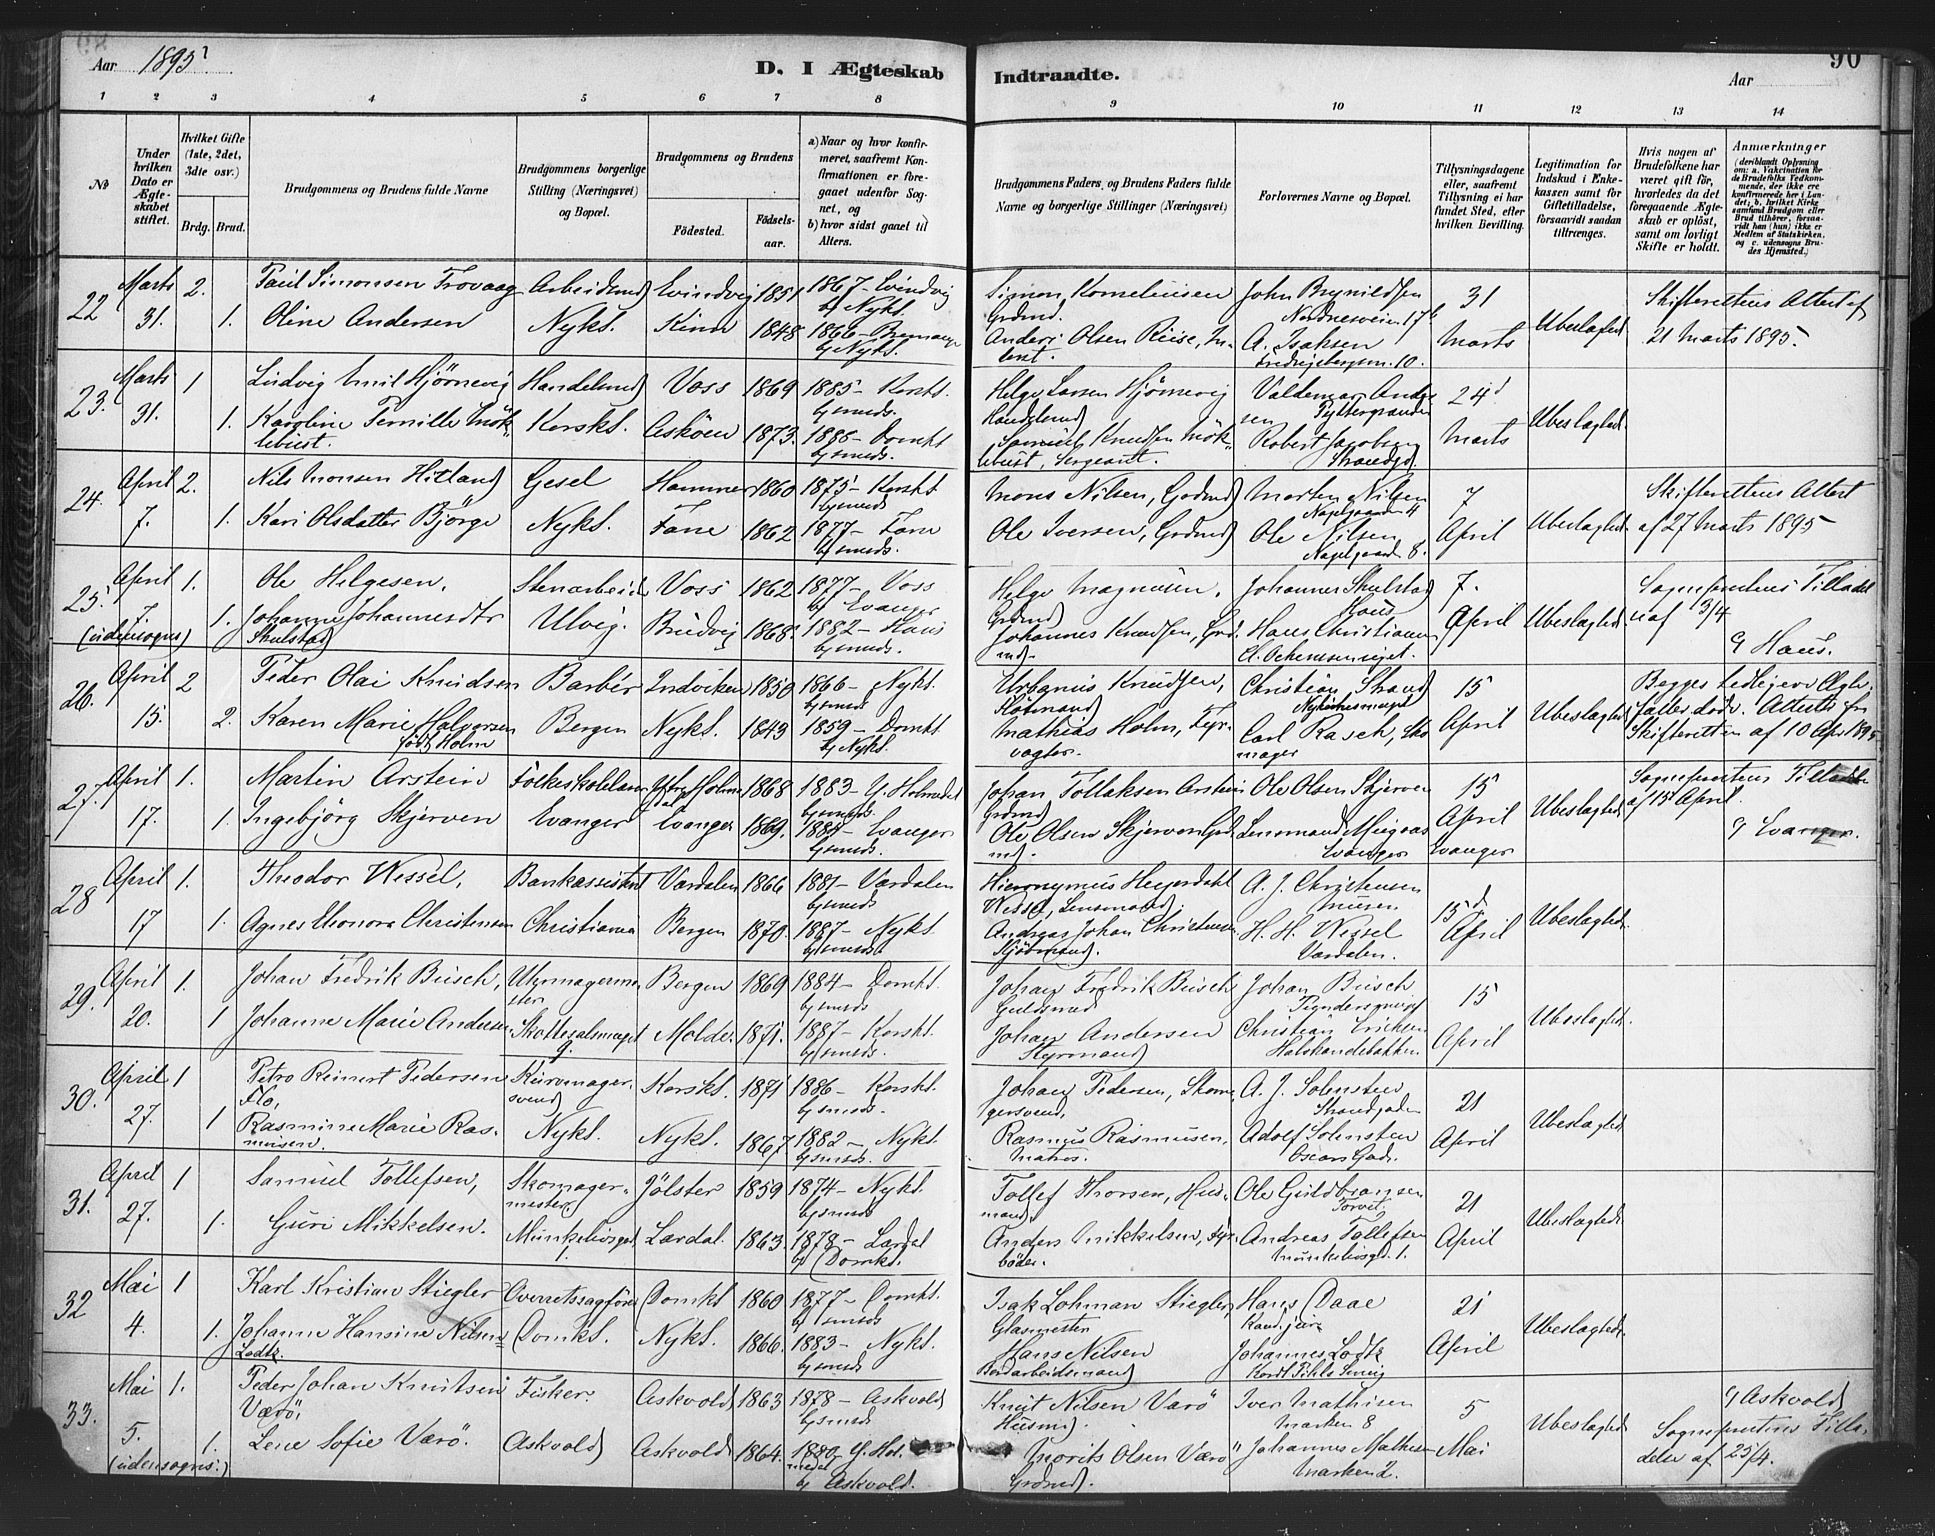 Aar 1895.
D. I Ægteskab Indtraadte.
90
Aar
1 2 3 4 5 6 7 8 9 10 11 12 13 14
No
Under hvilken Dato er Ægteskabet stiftet.
Hvilket Gifte (1ste, 2det, 3die osv.)
Brdg. Brud.
Brudgommens og Brudens fulde Navne
Brudgommens borgerlige Stilling (Næringsvei) og Bopæl.
Brudgommens og Brudens
Födested.
Födselsaar.
a) Naar og hvor konfirmeret, saafremt Konfirmationen er foregaaet udenfor Sognet, og
b) hvor sidst ganet til Alters.
Brudgommens Faders og Brudens Faders fulde Navne og borgerlige Stillinger (Næringsvei)
Forlovernes Navne og Bopæl.
Tillysningsdagene eller, saafremt Tillysning ei har fundet Sted, efter hvilken Bevilling.
Legitimation for Indskud i Enkekassen samt for Giftetilladelse, forsaavidt saadan tiltrænges.
Hvis nogen af Brudefolkene har været gift för, hvorledes da det foregaaende Ægteskab er oplöst, samt om lovligt Skifte er holdt.
Anmærkninger (deriblandt Oplysning om: a. Vakcination for de Brudefolks Vedkommende, der ikke ere konfirmerede her i Landet; b. hvilket Kirkesamfund Brudgom eller Brud tilhörer, forsaavidt han (hun) ikke er Medlem af Statskirken, og c. udensogns Brudes Hjemsted.)
22 Marts 31. 2. Paul Simonsen Trovaag Arbeidsmd Evindvig 1851 1867 - Evindvig b) Nykt.
Simon Korneliusen Grdmd. John Brynildsen Nordnesveien 17 31 Marts Ubeslægtede Skifterettens Attest af 21 Marts 1895.
1. Oline Andersen Nykt. Kinn 1848 1866 - b) Nykt.
Anders Olsen Reise, A. Isaksen 10.
23. Marts 31. 1 Ludvig Emil Hjørnevig Handelsmd Voss 1869 1885 - Korskt. b) smeds.
Helge Larsen Hjørnevig Handelsmd Valdemar Andersen 24 Marts Ubeslægtede
1. Karoline Pernille Møklebust. Korskt. Askøen 1873. 1888 - Domkt b) smeds.
Samuel Knudsen Møklebust, Sergeant. Robert Jacobsen Strandgd.
24. April 7. 2. Nils Monsen Hitland Gesel Hammer 1860 1875 - Korskt. b) smeds
Mons Nilsen, Grdmd Morten Nilsen 4 7 April Ubeslægtede Skifterettens Attest af 27 Marts 1895
1. Kari Olsdatter Bjørge Nykt. Fane 1862 1877 - Fane b) smeds.
Ole Iversen, Grdmd Ole Nilsen 8.
25. April 7. (udensogns) 1. Ole Helgesen, Stenarbeid Voss 1862 1877 - Voss b) Evanger
Helge Magnusen, Grdmd Johannes Skulstad Haus 7. April Ubeslægtede. Sognepræstens Tilladelse af 3/4
1. Johanne Johannesdtr Skulstad Ulvig. Brudvig 1868. 1882 - Haus b) smeds.
Johannes Knudsen, Grdmd. Hans Christiansen c) Haus.
26. April 15. 2 Peder Olai Knudsen Barbér Indviken 1850 1866 - Nykt. b) smeds
Urbanus Knudsen, Christian Strand 15 April Ubeslægtede Begges tidligere Ægtefæller døde. Attester fra Skifteretten af 10 Apr 1895
2. Karen Marie Halvorsen født Holm Bergen Nykt. 1843 1859 - Domkt. b) Nykt.
Mathias Holm, Fyrvogter. Carl Rasch, Skomager
27. April 17. 1. Martin Arstein Folkeskolelærer Ytre Holmedal 1868 1883 - Y. Holmedal b) smeds.
Johan Tollaksen Arstein Grdmd Ole Olsen Skjerven 15 April Evanger Ubeslægtede Sognepræstens Tilladelse af 15 April.
1. Ingebjörg Skjerven Evanger Evanger 1869. 1884 - Evanger b) smeds.
Ole Olsen Skjerven Grdmd. Lensmand Mugaas Evanger c) Evanger.
28 April 17 1. Theodor Wessel, Bankassistent Værdalen 1866 1881 - Værdalen b) smeds
Hieronymus Heyerdahl Wessel, Lensmand. A. J. Christensen 15 April Ubeslægtede
1. Agnes Eleonora Christensen Christiania Bergen 1870. 1887 - Nykt b) smeds
Andreas Johan Christensen Sjömand. H. H. Wessel Værdalen.
29. April 20. 1. Johan Fredrik Busch, Uhrmagermester Bergen 1869 1884 - Domkt. b) smeds
Johan Fredrik Busch Guldsmed Johan Busch 15 April Ubeslægtede.
1 Johanne Marie Andersen Skottesalmuget 9. Molde. 1871. 1887 - Korskt. b) smeds.
Johan Andersen Styrmand Christian Erichsen
30. April 27. 1 Petro Reinert Pedersen Flo, Kurvmagersvend Korskt. 1871 1886 - Korskt. b) smeds.
Johan Pedersen, Skomagersvend, A. J. Solensten Strandgaden 21 April Ubeslægtede
1 Rasmine Marie Rasmusen. Nykt. Nykt. 1867 1882 - Nykt. b) smeds.
Rasmus Rasmusen, Matros. Adolf Solensten Oscars Gade.
31. April 27. 1 Samuel Tollefsen, Skomagermester Jölster 1859 1874 - Nykt. b) smeds
Tollef Thorsen, Husmand Ole Guldbransen Torvet. 21 April Ubeslægtede
1. Guri Mikkelsen. Munkelivsgd 1. Lærdal. 1863. 1878 - Lærdal b) Domkt.
Anders Mikkelsen, Fyrbøder. Andreas Tollefsen Munkelivsgd. 1.
32 Mai 4. 1 Karl Kristian Stiegler Overretssagförer Domkt 1860 1877 - Domkt. b) smeds
Isak Lohman Stiegler, Glasmester Hans Daae Kand. jur. 21 April Ubeslægtede.
1. Johanne Hansine Nilsen Lodtz. Domkt. Nykt. 1866. 1883 - Nykt. b) smeds
Hans Nilsen Bordarbeidsmand Johannes Lodtz Kordt Pihls Smug
33. Mai 5. (udensogns.) 1. Peder Johan Knutsen Værö, Fisker. Askvold 1863 1878 - Askvold b) smeds
Knut Nilsen Værö Husmd. Iver Mathisen Marken 8 5 Mai Ubeslægtede c) Askvold Sognepræstens Tilladelse af 25/4.
1. Lene Sofie Værö. Askvold Askvold 1864. 1880 Y. Holmedal b) Askvold.
Morits Olsen Værö Grdmd. Johannes Mathisen Marken 2.